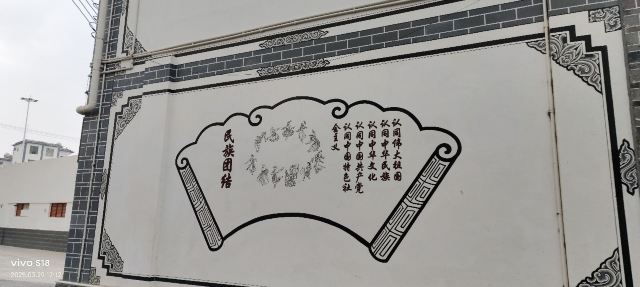 民族团结
认同伟大祖国
认同中华民族
认同中华文化
认同中国共产党
认同中国特色社
会主义
vivo S18